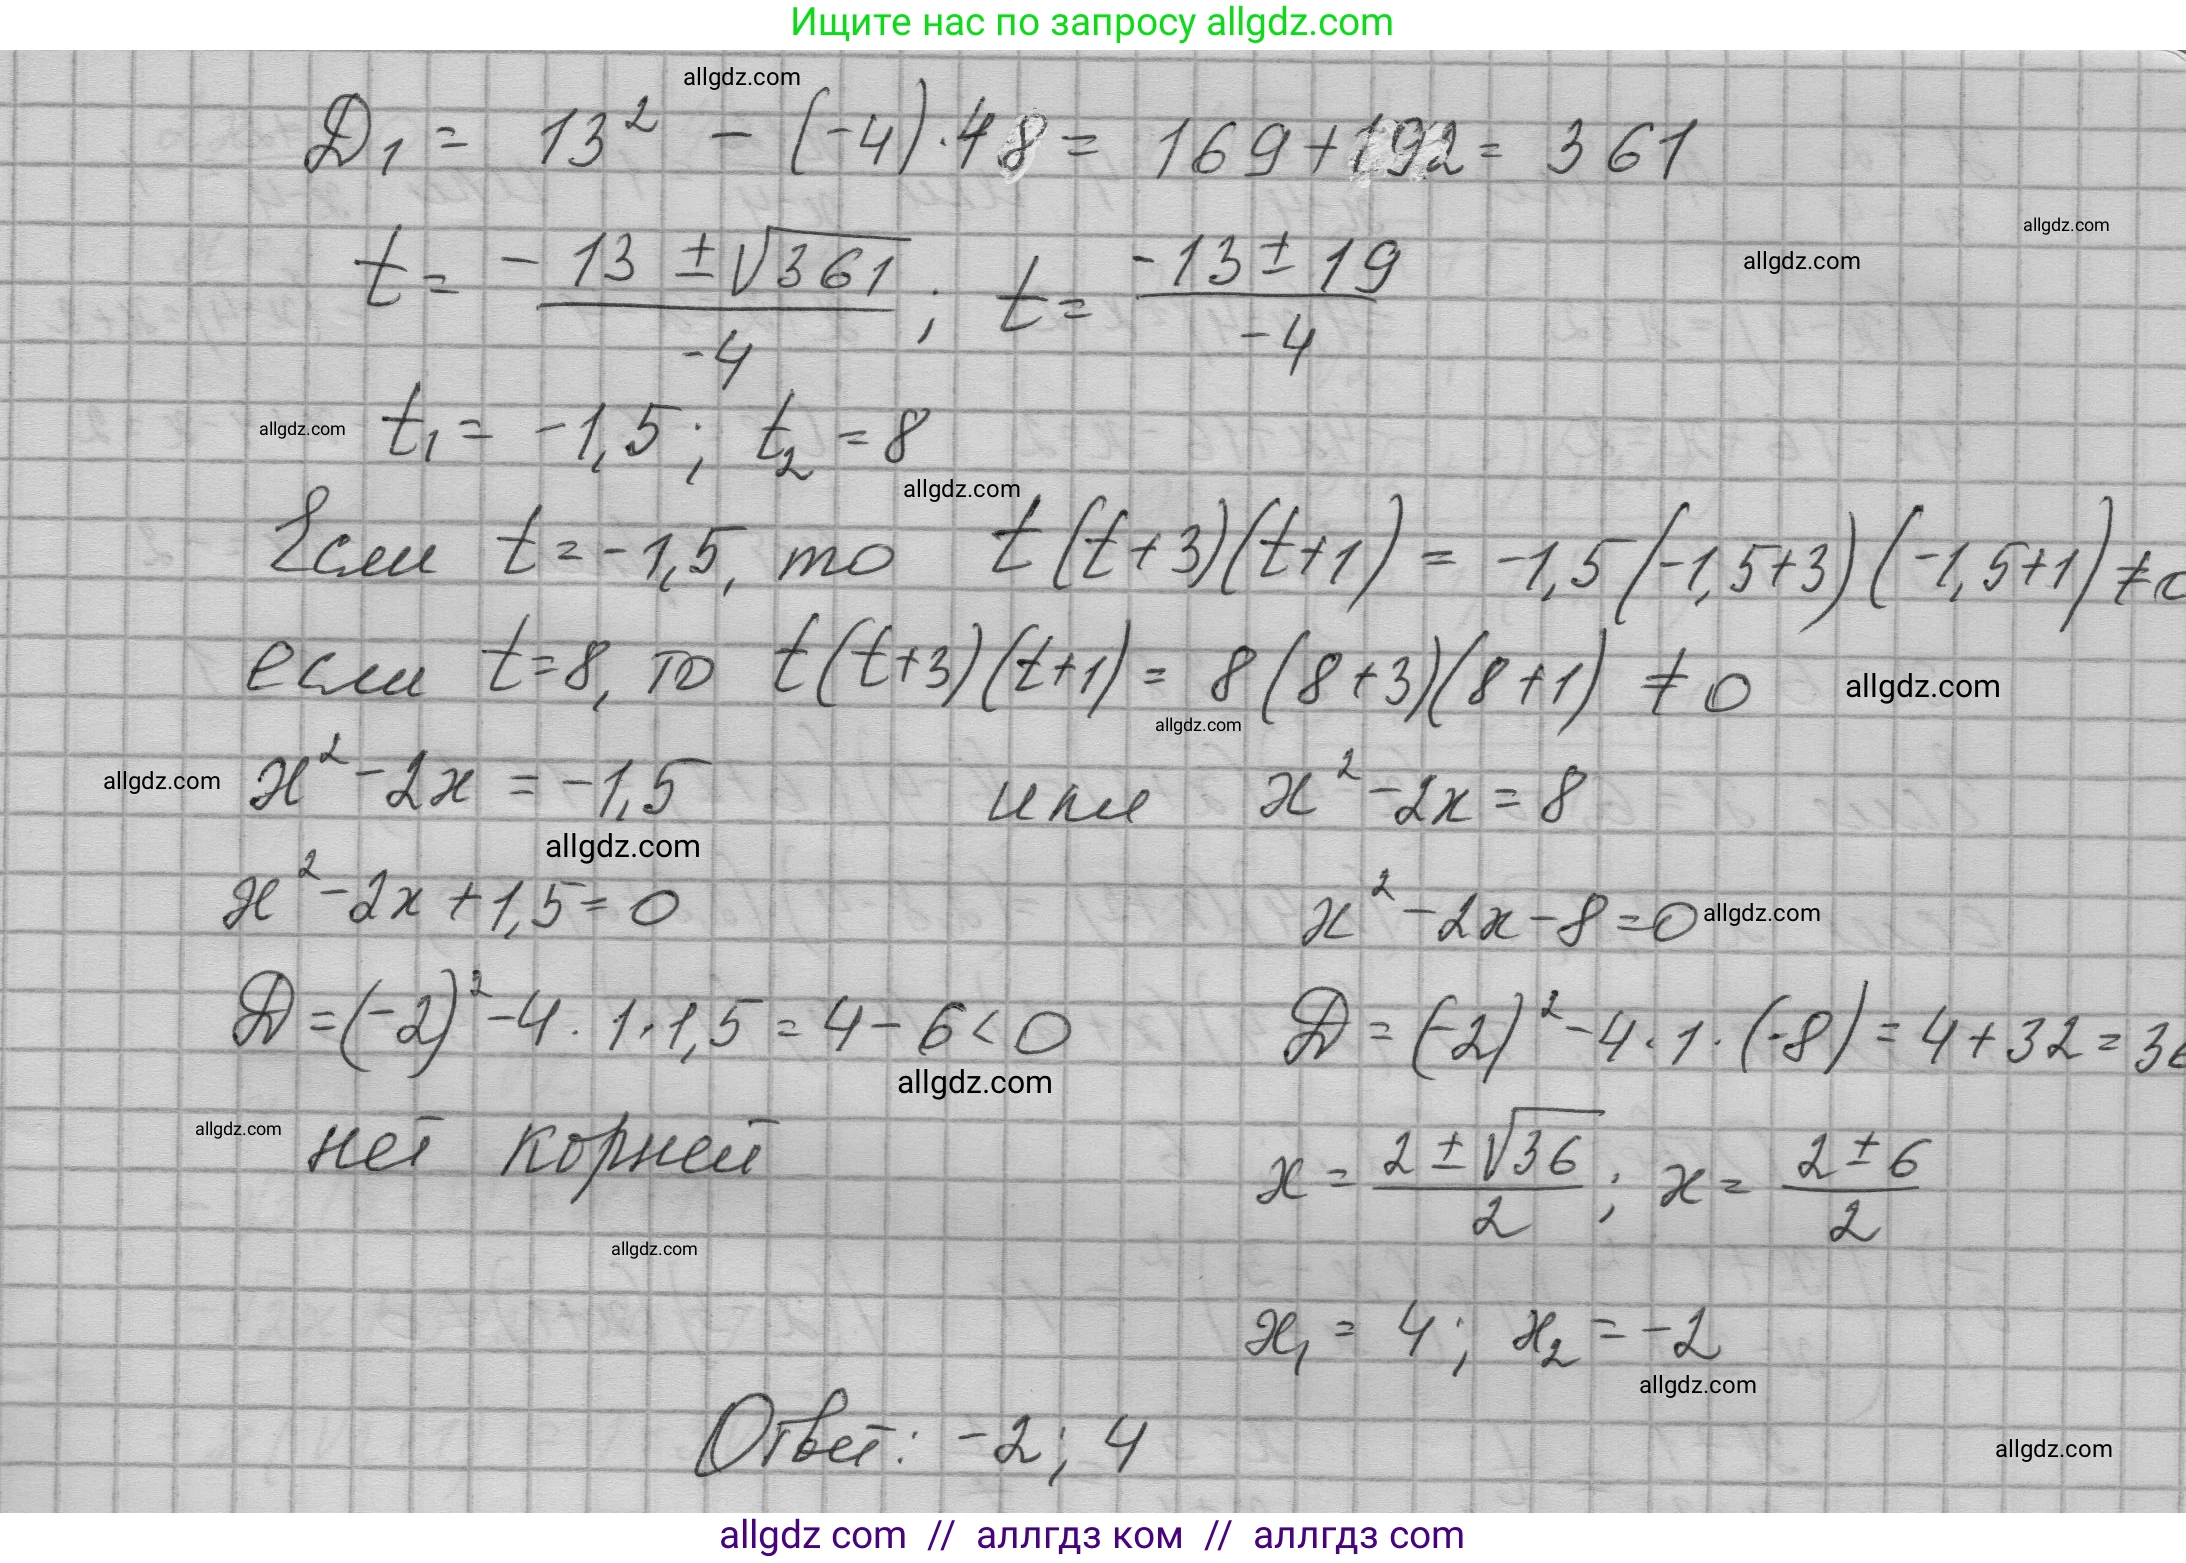 Ищите нас по запросу allgdz.com
allgdz.com
D₁ = 13² - (-4)·48 = 169 + 192 = 361
allgdz.com
allgdz.com
t = (-13 ± √361)/-4 ; t = (-13 ± 19)/-4
allgdz.com
t₁ = -1,5 ; t₂ = 8
allgdz.com
Если t = -1,5, то t(t+3)(t+1) = -1,5(-1,5+3)(-1,5+1) ≠ 0
если t=8, то t(t+3)(t+1) = 8(8+3)(8+1) ≠ 0
allgdz.com
allgdz.com
allgdz.com
x² - 2x = -1,5 или x² - 2x = 8
allgdz.com
x² - 2x + 1,5 = 0 x² - 2x - 8 = 0
allgdz.com
D = (-2)² - 4·1·1,5 = 4 - 6 < 0 D = (-2)² - 4·1·(-8) = 4 + 32 = 36
allgdz.com
allgdz.com
нет корней x = (2 ± √36)/2 ; x = (2 ± 6)/2
allgdz.com
x₁ = 4 ; x₂ = -2
allgdz.com
Ответ: -2 ; 4
allgdz.com
allgdz com // аллгдз ком // аллгдз com